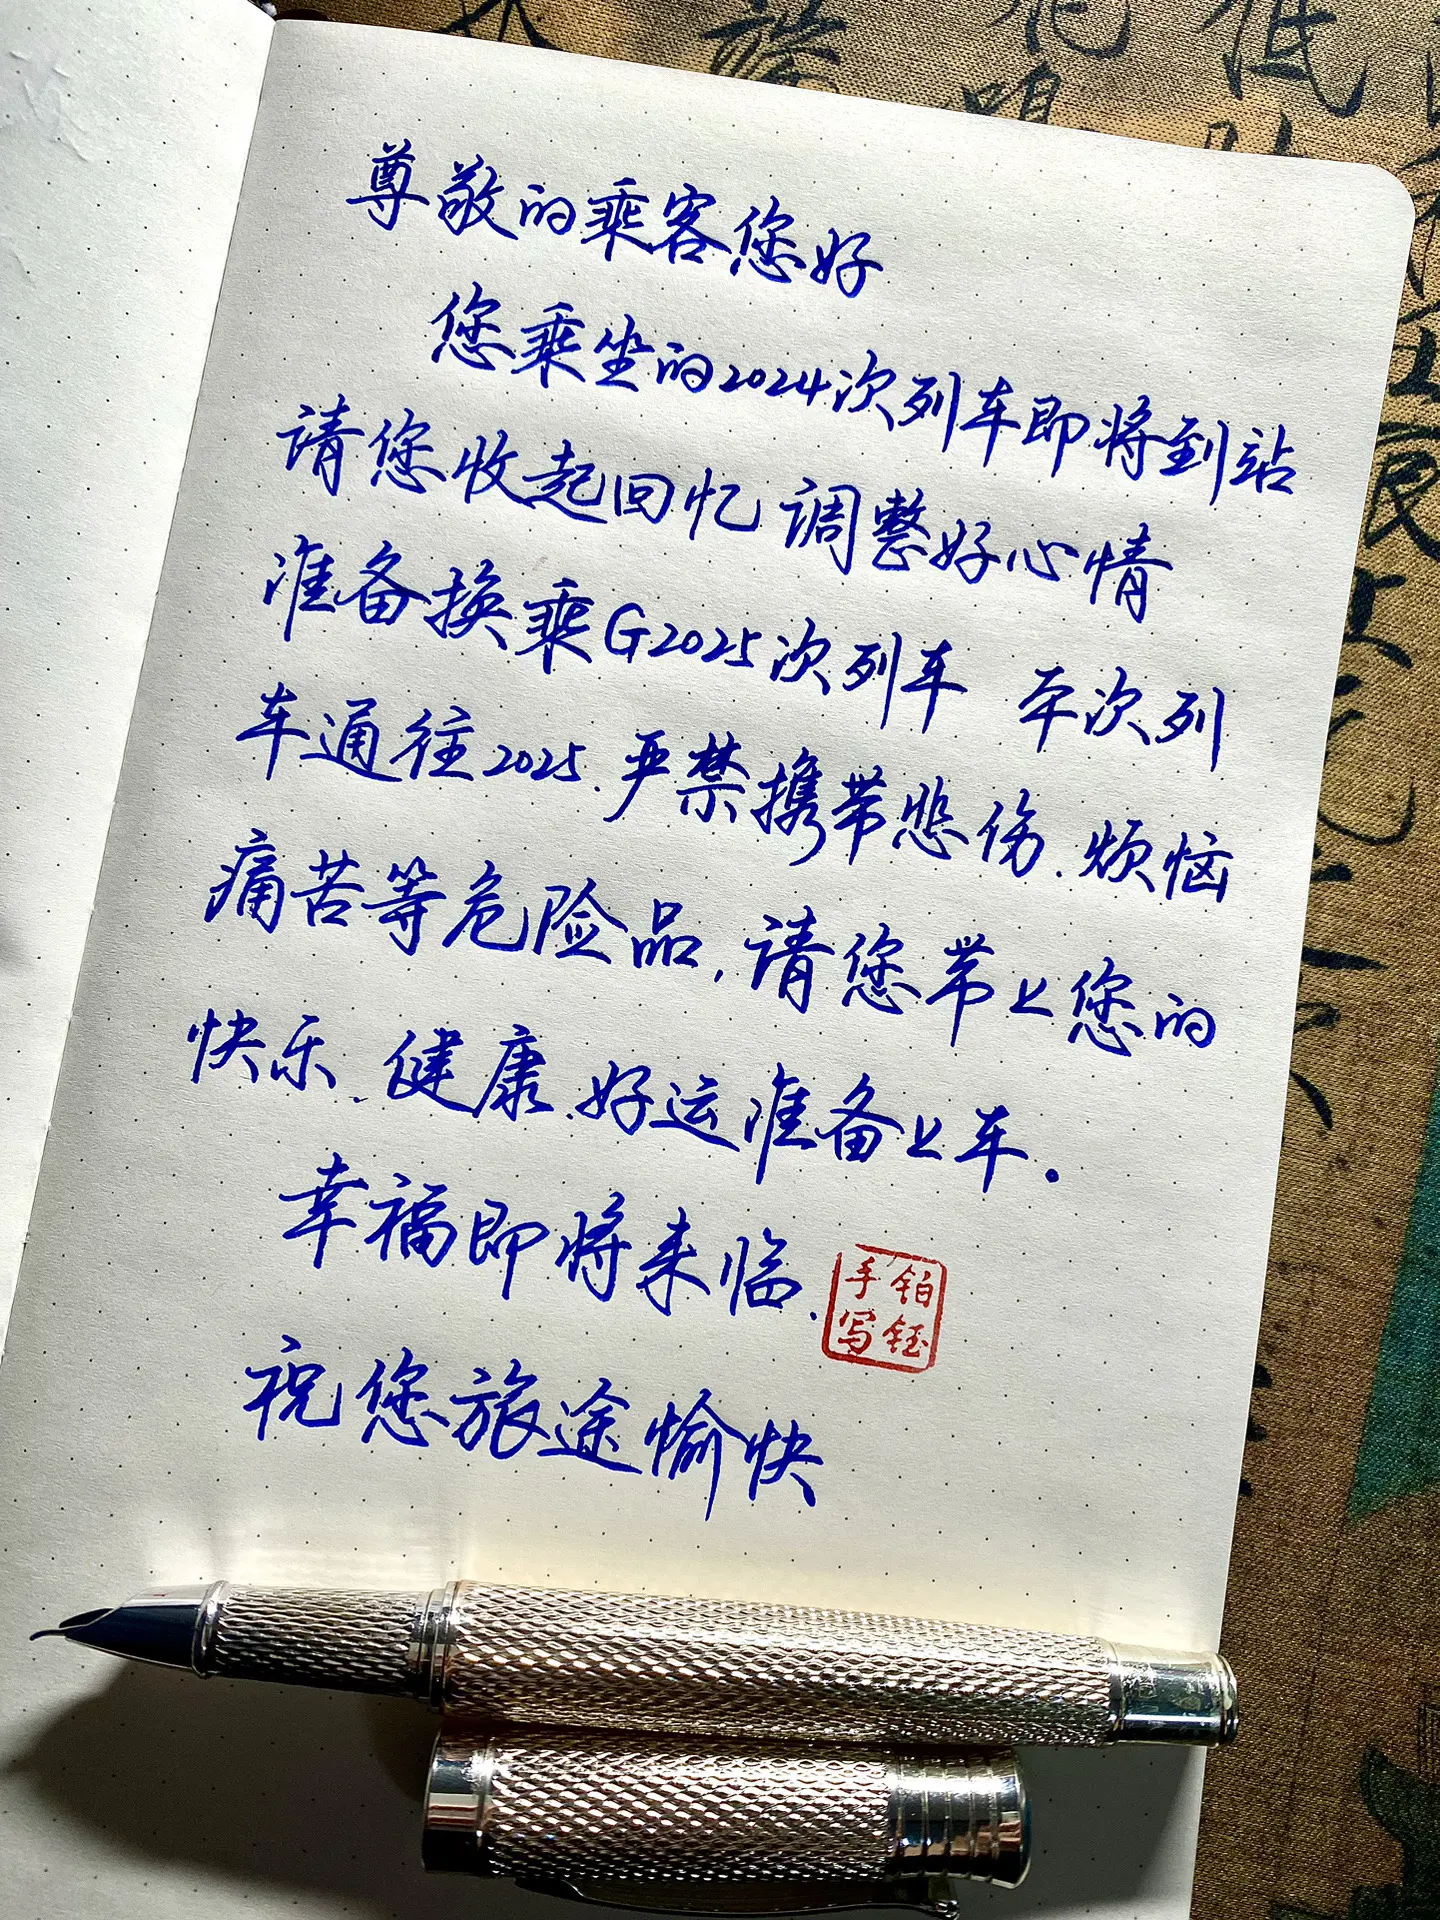 尊敬的乘客您好
您乘坐的2024次列车即将到站
请您收起回忆 调整好心情
准备换乘G2025次列车 本次列
车通往2025.严禁携带悲伤.烦恼
痛苦等危险品,请您带上您的
快乐.健康.好运准备上车。
幸福即将来临.
祝您旅途愉快
铂钰
手写